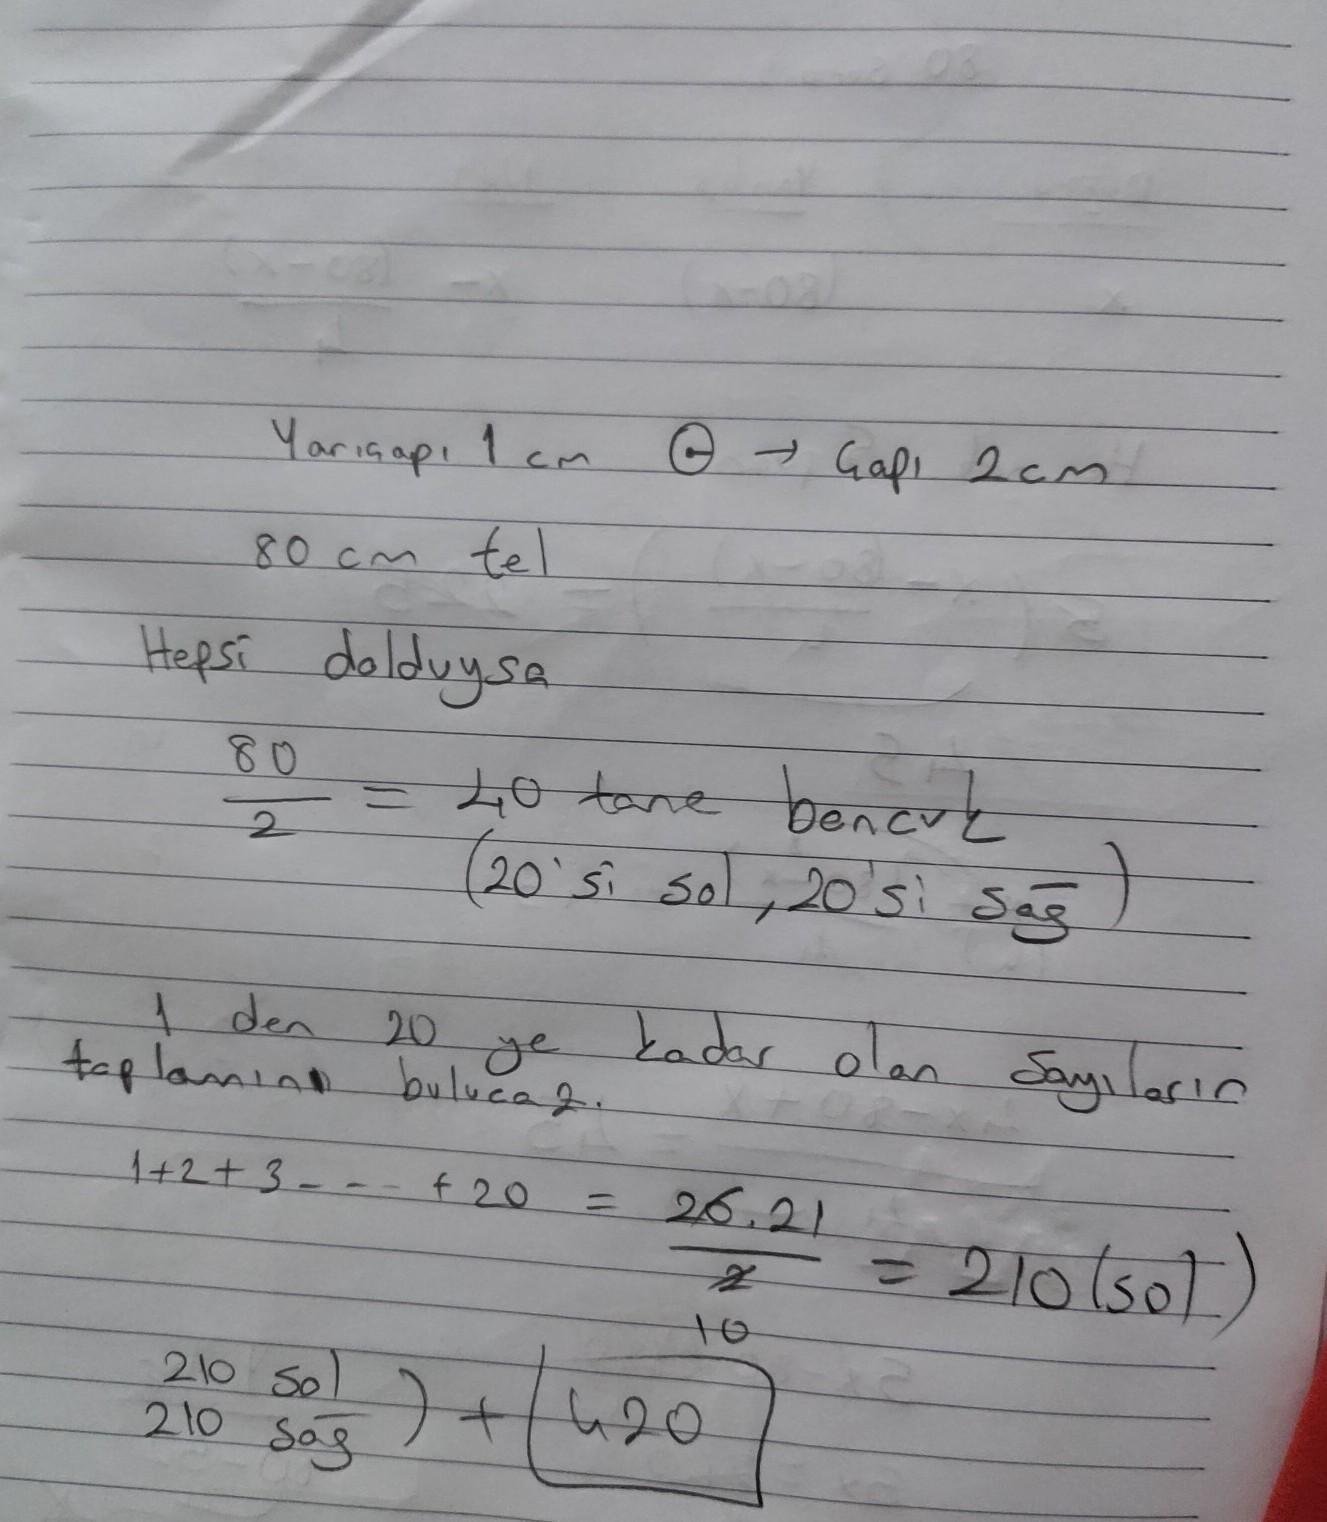 Yarıçapı 1 cm ⊖ → Çapı 2 cm
80 cm tel
Hepsi dolduysa
80/2 = 40 tane boncuk
(20'si sol, 20'si sağ)
1 den 20 ye kadar olan sayıların
toplamını bulucaz.
1+2+3---- +20 = 20.21/2 = 210 (sol)
10
210 sol
210 sağ ) + 420